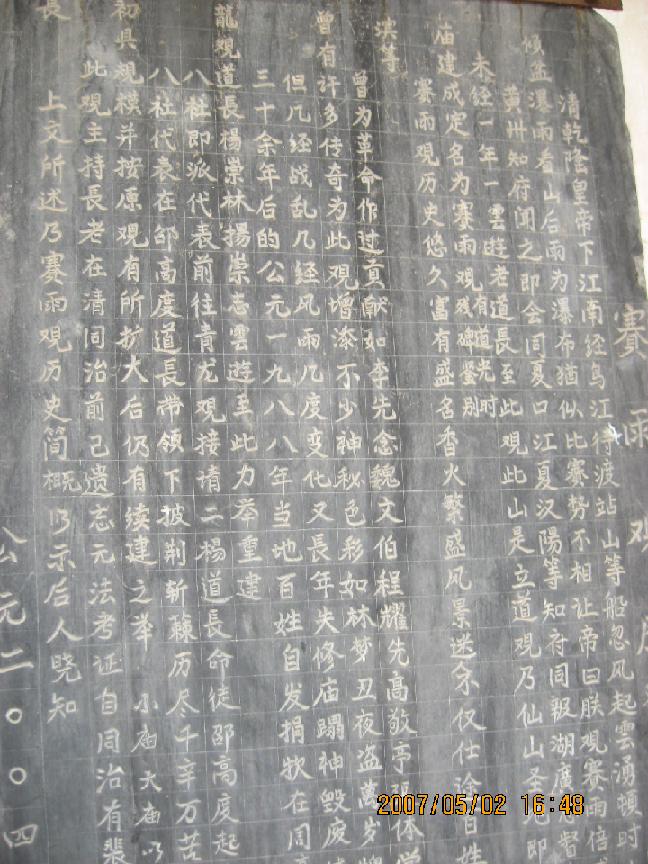 赛雨观
清乾隆皇帝下江南经乌江待渡站山等船忽风起雲湧頓时
倾盆瀑雨看山后雨为瀑布猶似比赛势不相让帝曰朕观赛雨倍
黄州知府闻之即会同夏口江夏汉陽等知府同报湖廣督
未经一年一雲遊老道長至此观此山是立道观乃仙山圣地即
庙建成定名为赛雨观残碑鉴别有道光时
赛雨观历史悠久富有盛名香火繁盛风景迷余仅仕途百姓
曾为革命作过貢献如李先念魏文伯程耀先高敬亭
洪等
曾有许多传奇为此观增漆不少神秘色彩如林梦丑夜盗萬岁牌
但几经战乱几经风雨几度变化又長年失修庙蹋神毁废
三十余年后的公元一九八八年当地百姓自发捐款在周
龍观道長楊崇林揚崇志雲遊至此力举重建
八社即派代表前往青龙观接请二楊道長命徒邵高度起
八社代表在邵高度道長带领下披荆斩棘历尽千辛万苦
初具规模并按原观有所扩大后仍有续建之举 小庙大庙以
此观主持長老在清同治前己遗忘元法考证自同治有裴
長
上文所述乃赛雨观历史简概乃示后人晓知
公元二〇〇四
2007/05/02 16:48